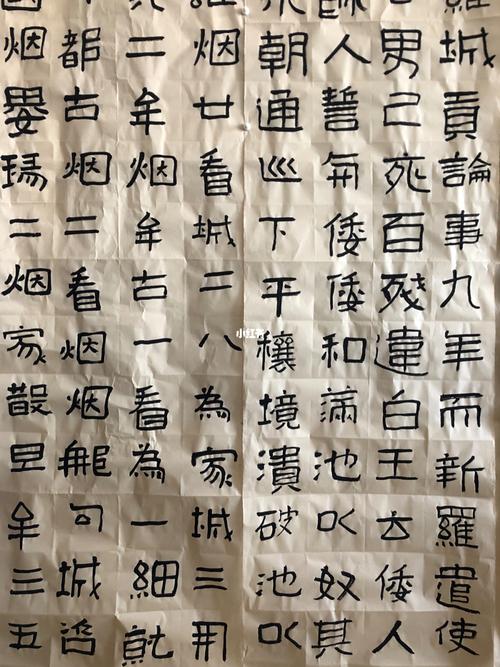 羅城貢論事九年而新羅遣使
男己死百殘違白王云倭人
師人誓年倭倭和滿池以奴其
朝通巡下平穰境潰破池以
烟廿看城二八為家城三用
二牟烟牟古一看為一細就
都古烟二看烟那句城
烟婁瑪二烟家散旦牟三五
小红书